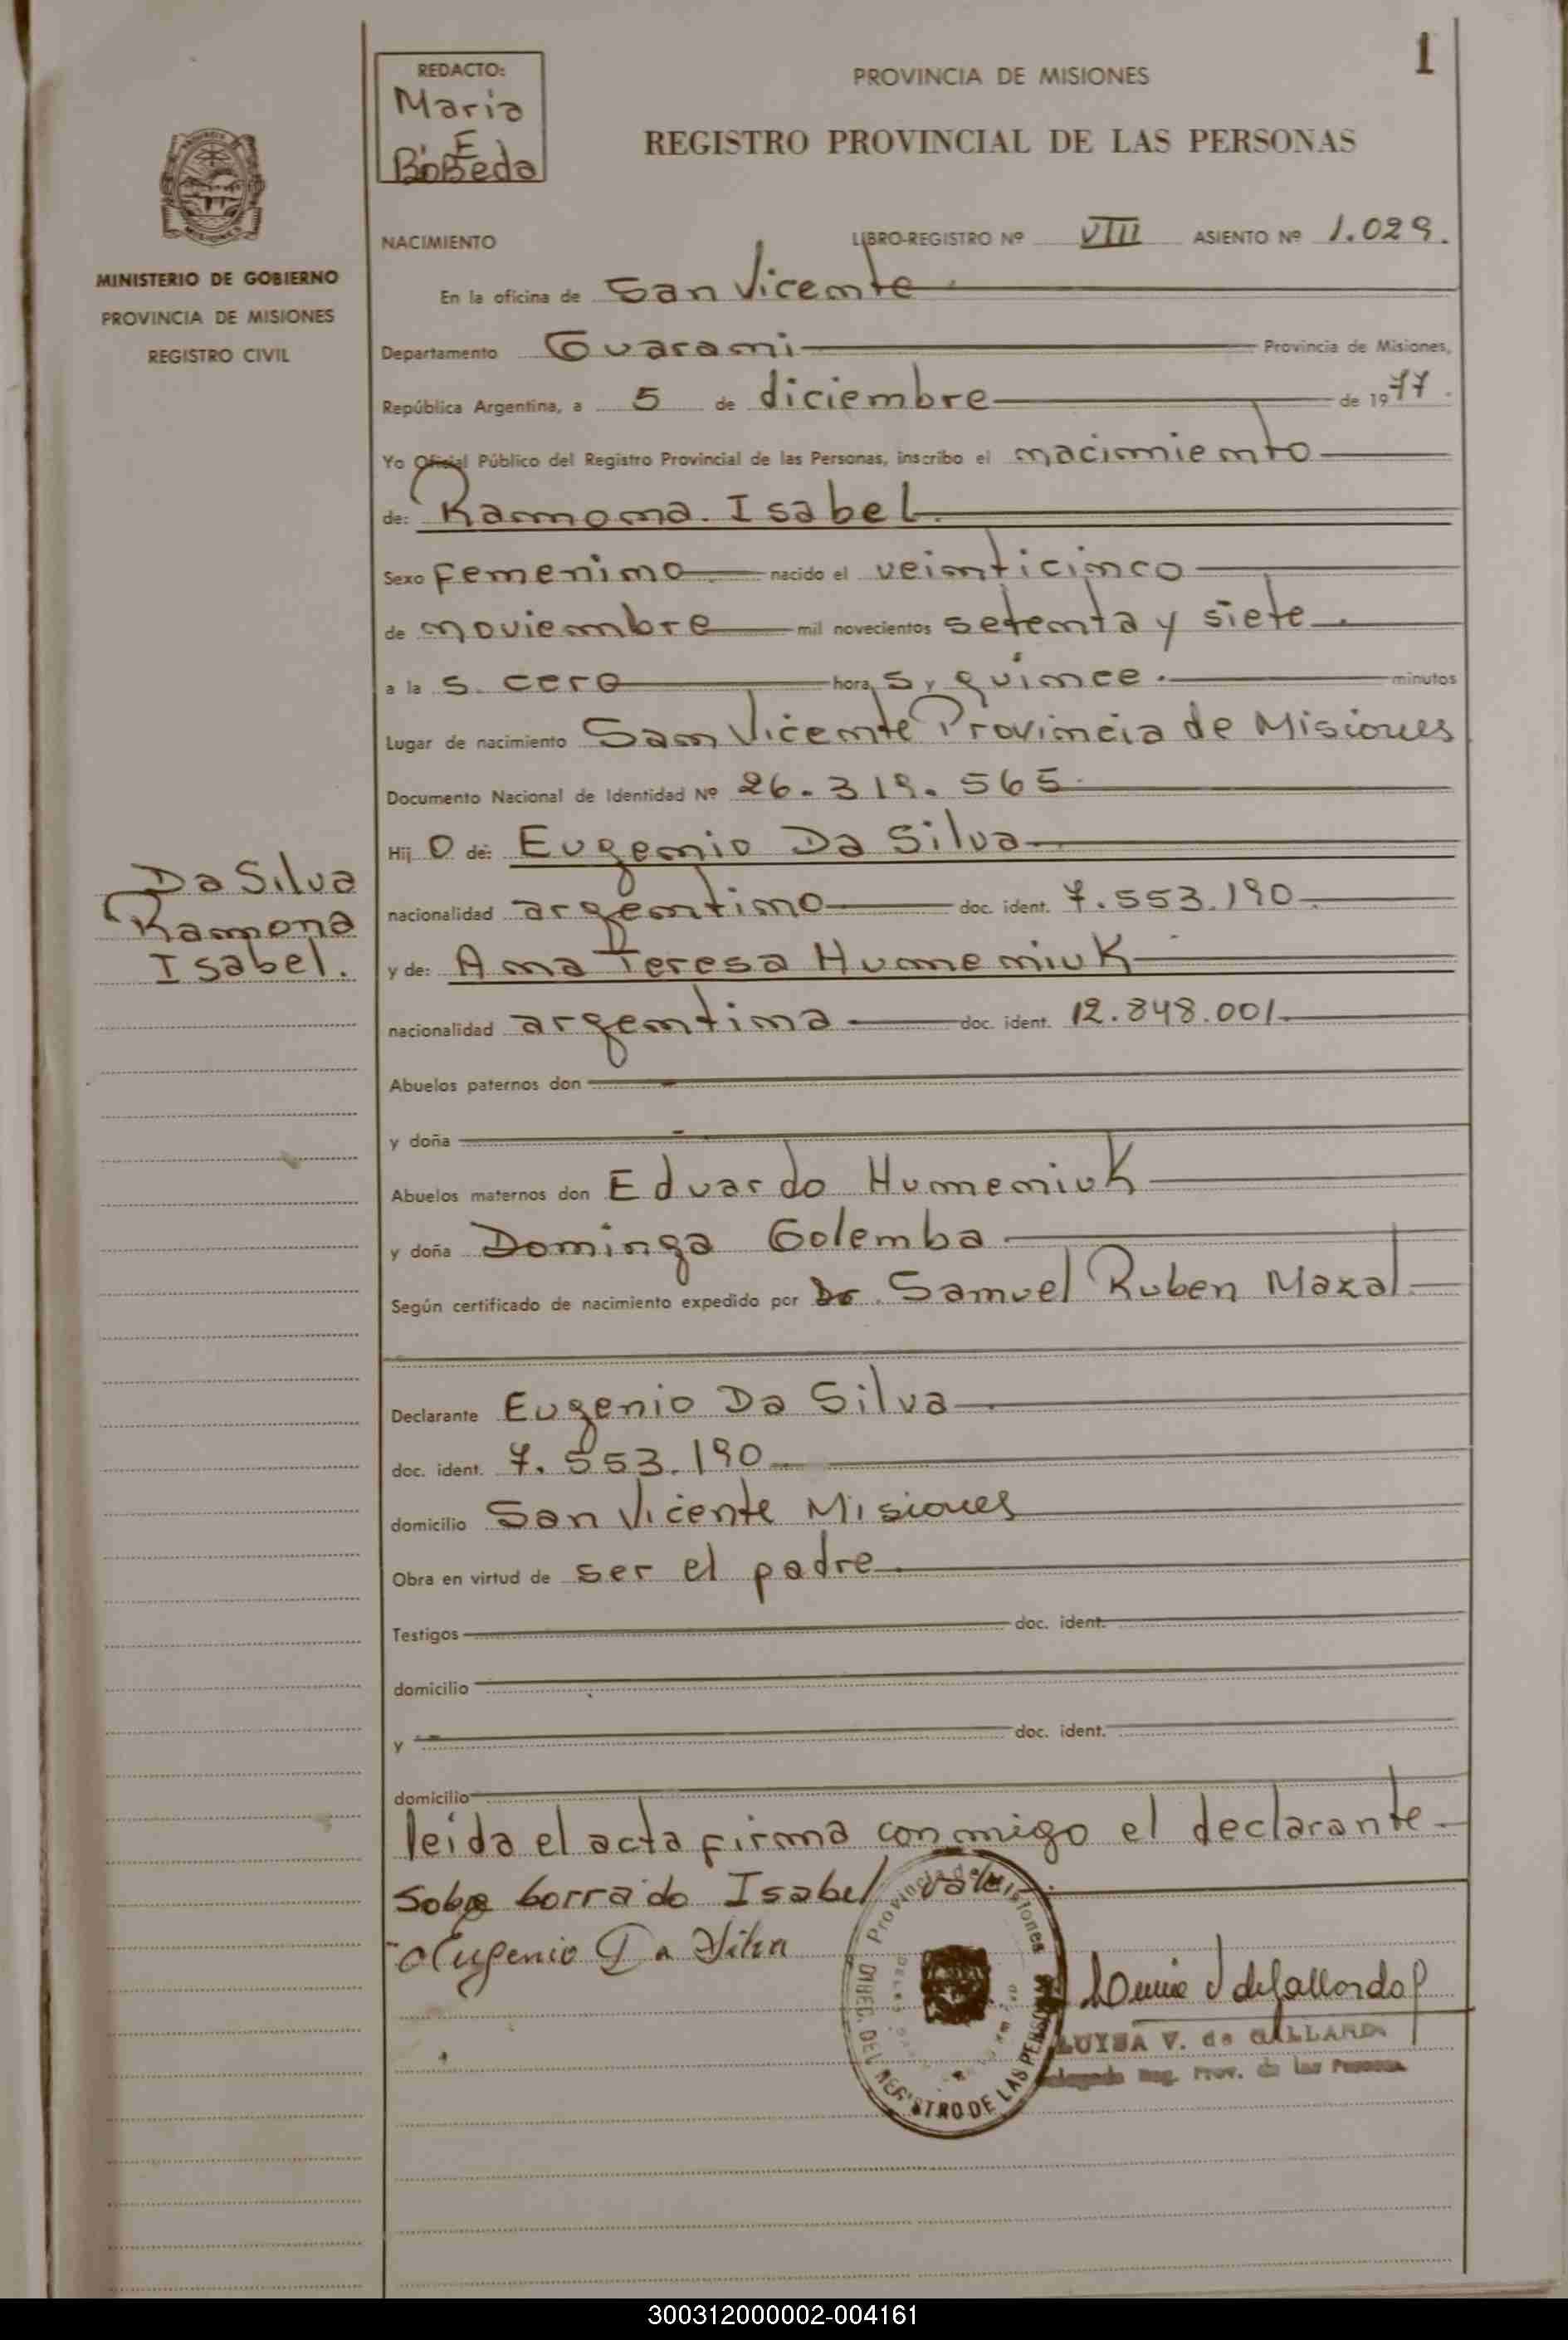 1
REDACTO:
Maria
E
BoBeda
PROVINCIA DE MISIONES
REGISTRO PROVINCIAL DE LAS PERSONAS
MINISTERIO DE GOBIERNO
PROVINCIA DE MISIONES
REGISTRO CIVIL
NACIMIENTO LIBRO-REGISTRO Nº VIII ASIENTO Nº 1.029.
En la oficina de San Vicente
Departamento Guarani Provincia de Misiones,
República Argentina, a 5 de diciembre de 1977.
Yo Oficial Público del Registro Provincial de las Personas, inscribo el nacimiento
de: Ramona. Isabel
Sexo femenino nacido el veinticinco
de noviembre mil novecientos setenta y siete
a la s. cero hora s y quince. minutos
Lugar de nacimiento San Vicente Provincia de Misiones
Documento Nacional de Identidad Nº 26.319.565
Hij o de: Eugenio Da Silva
Da Silva
Ramona
Isabel.
nacionalidad argentino doc. ident. 7.553.190
y de: Ana Teresa Humeniuk
nacionalidad argentina doc. ident. 12.848.001
Abuelos paternos don
y doña
Abuelos maternos don Eduardo Humeniuk
y doña Dominga Golemba
Según certificado de nacimiento expedido por Dr. Samuel Ruben Maxal
Declarante Eugenio Da Silva
doc. ident. 7.553.190
domicilio San Vicente Misiones
Obra en virtud de ser el padre
Testigos doc. ident.
domicilio
y doc. ident.
domicilio
leida el acta firma conmigo el declarante
Sobre borrado Isabel vale
Eugenio Da Silva
Provincia de Misiones
DIREC. DEL REGISTRO DE LAS PERSONAS
LUYSA V. de GALLARDO
Delegada Reg. Prov. de las Personas
300312000002-004161